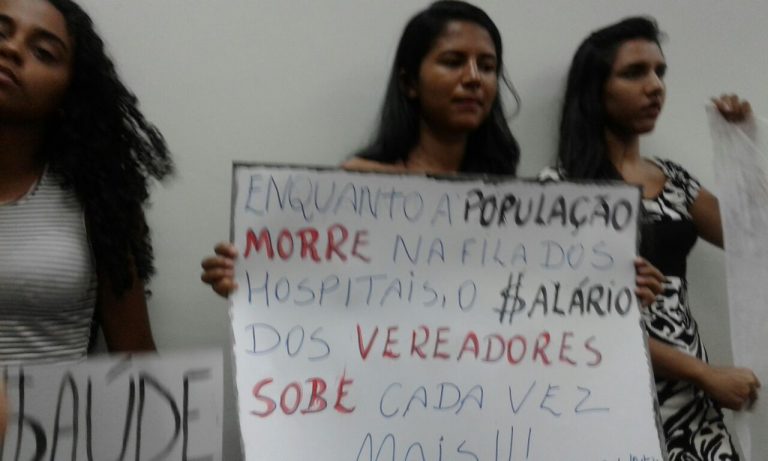 ENQUANTO A POPULAÇÃO
MORRE NA FILA DOS
HOSPITAIS, O $ALÁRIO
DOS VEREADORES
SOBE CADA VEZ
MAIS!!!
$AÚDE